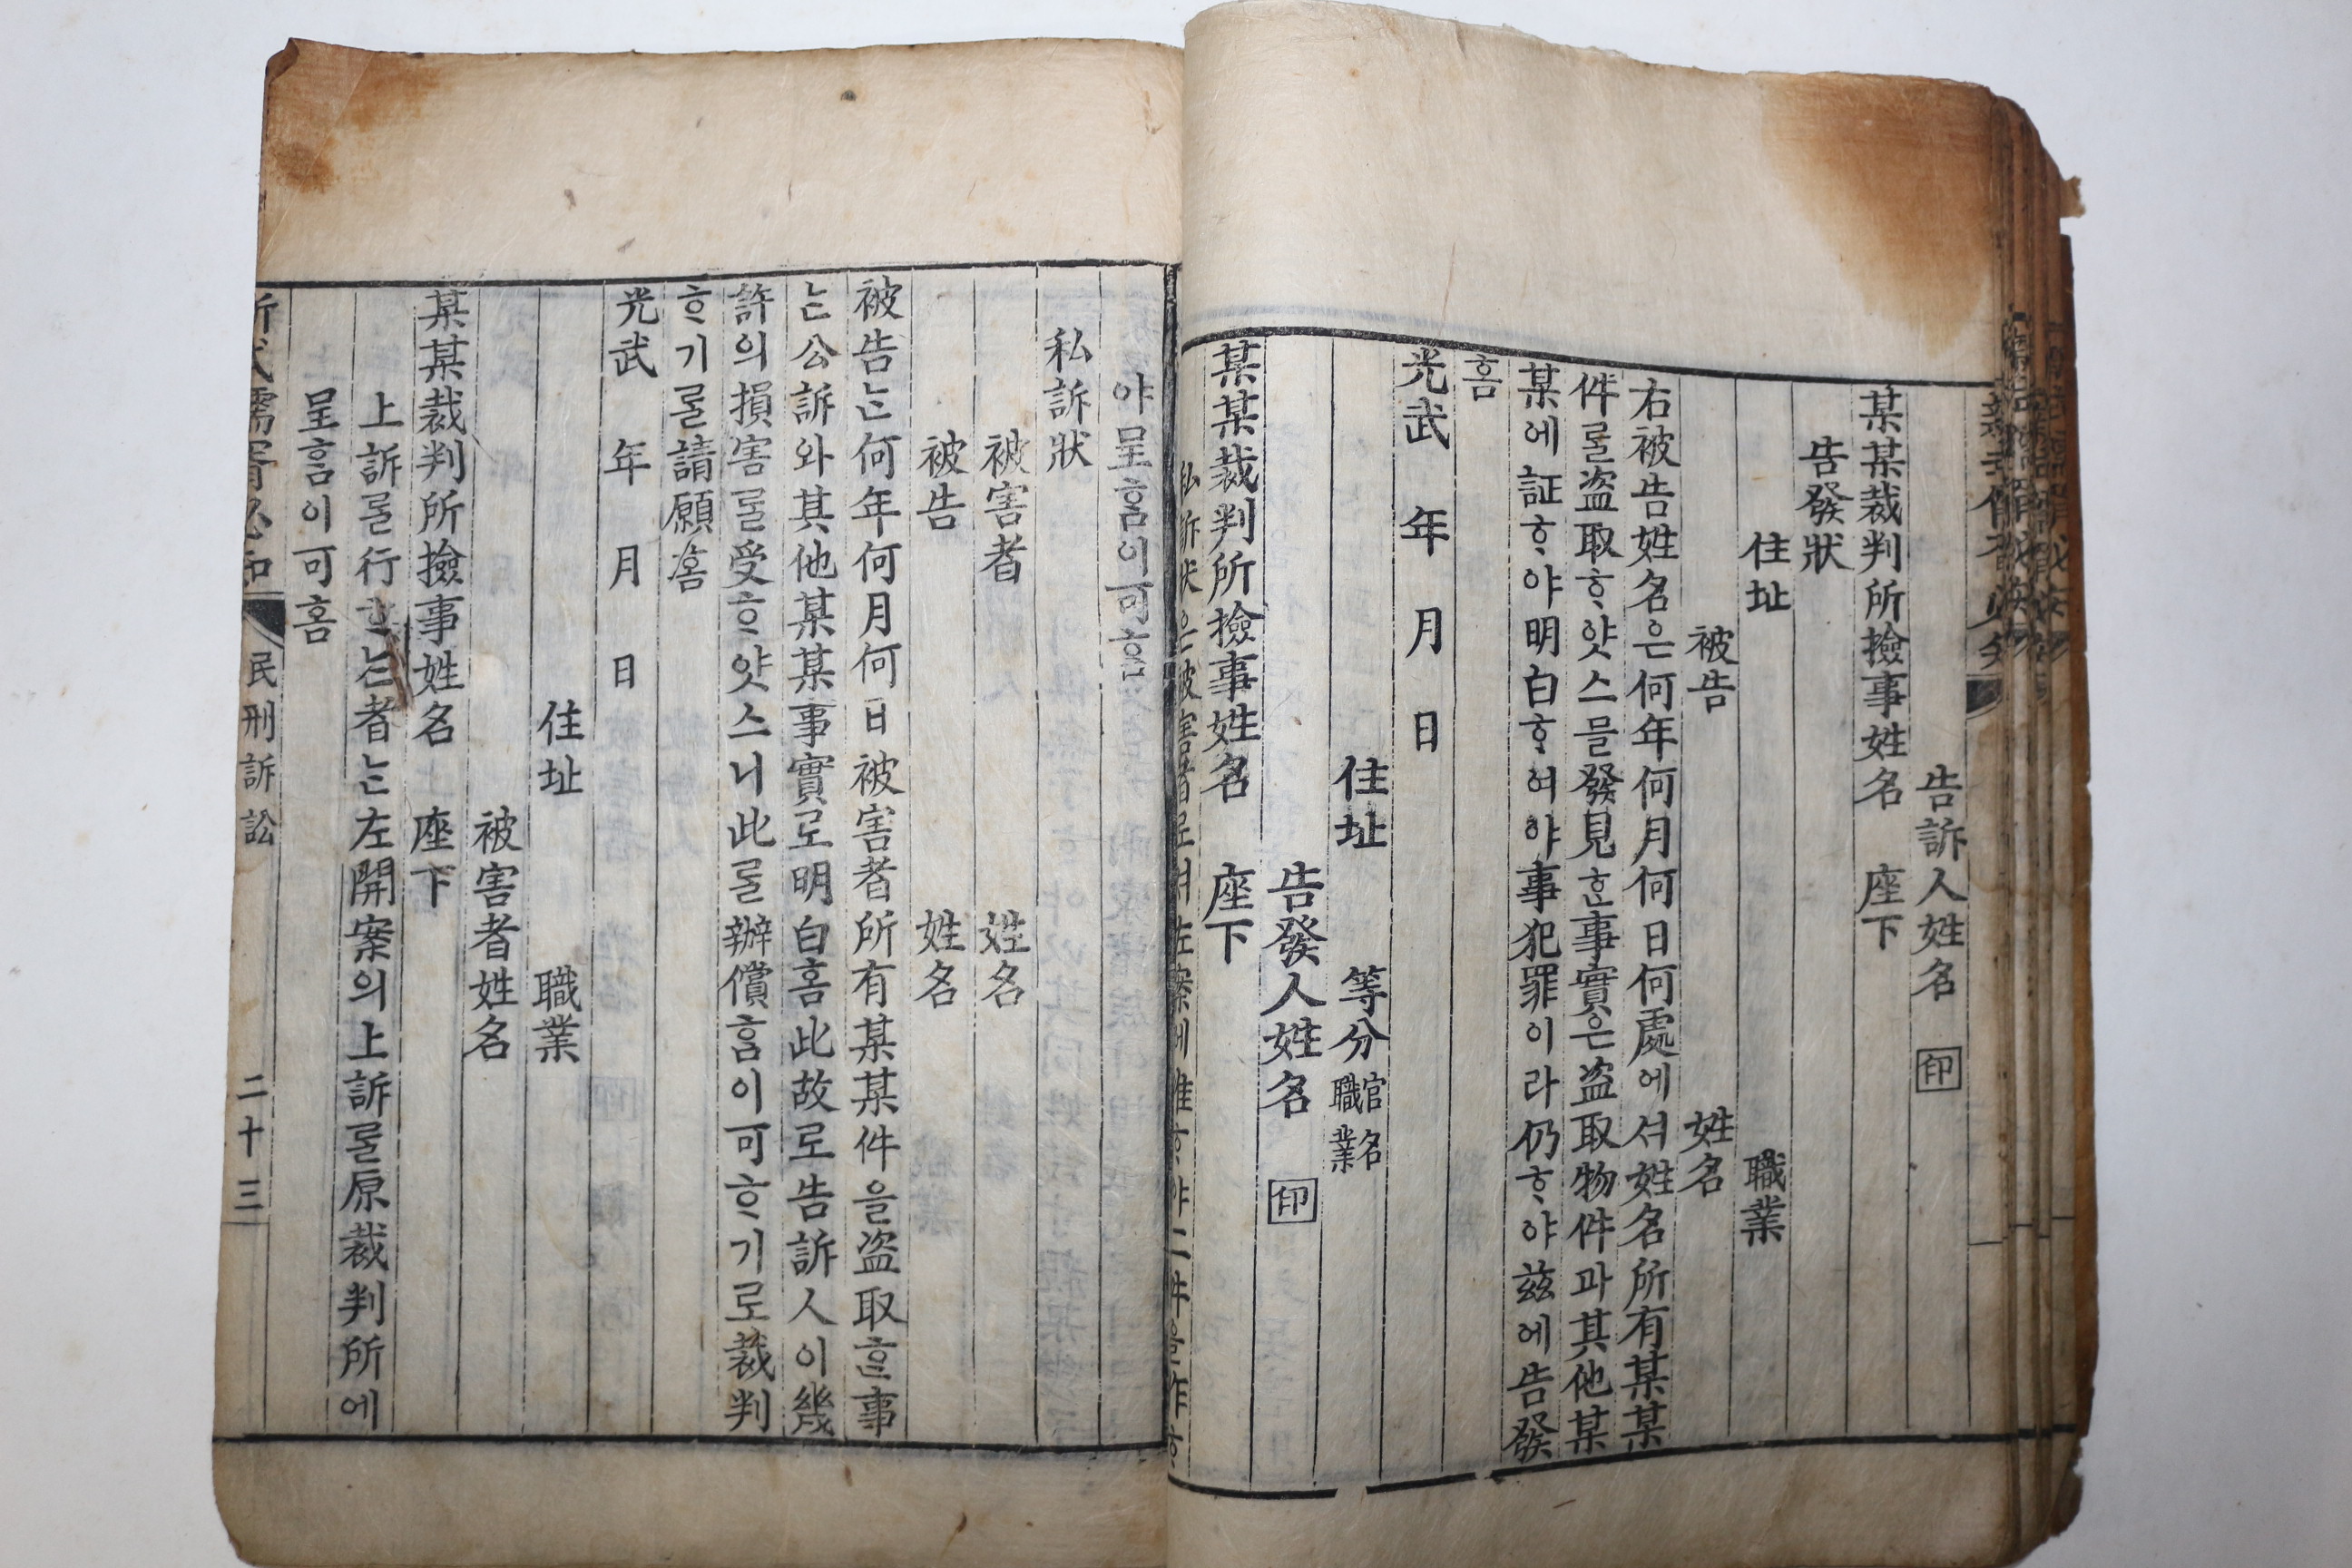 告訴人姓名 印
某某裁判所撿事姓名 座下
告發狀
住址 職業
被告 姓名
右被告姓名은何年何月何日何處에셔姓名所有某某
件룰盜取ᄒᆞ얏스믈發見ᄒᆞᆫ事實은盜取物件과其他某
某에証ᄒᆞ야明白ᄒᆞ여야事犯罪이라仍ᄒᆞ야玆에告發
홈
光武 年 月 日
住址 等分 官名 職業
告發人姓名 印
某某裁判所撿事姓名 座下
私訴狀은被害者로셔左案에準ᄒᆞ야二件을作ᄒᆞ
야呈홈이可홈
私訴狀
被害者 姓名
被告 姓名
被告ᄂᆞᆫ何年何月何日被害者所有某某件을盜取ᄒᆞᆫ事
ᄂᆞᆫ公訴와其他某某事實로明白홈此故로告訴人이幾
許의損害룰受ᄒᆞ얏스니此룰辦償홈이可ᄒᆞ기로裁判
ᄒᆞ기룰請願홈
光武 年 月 日
住址 職業
被害者姓名
某某裁判所撿事姓名 座下
上訴룰行ᄒᆞᄂᆞᆫ者ᄂᆞᆫ左開案의上訴룰原裁判所에
呈홈이可홈
民刑訴訟 二十三